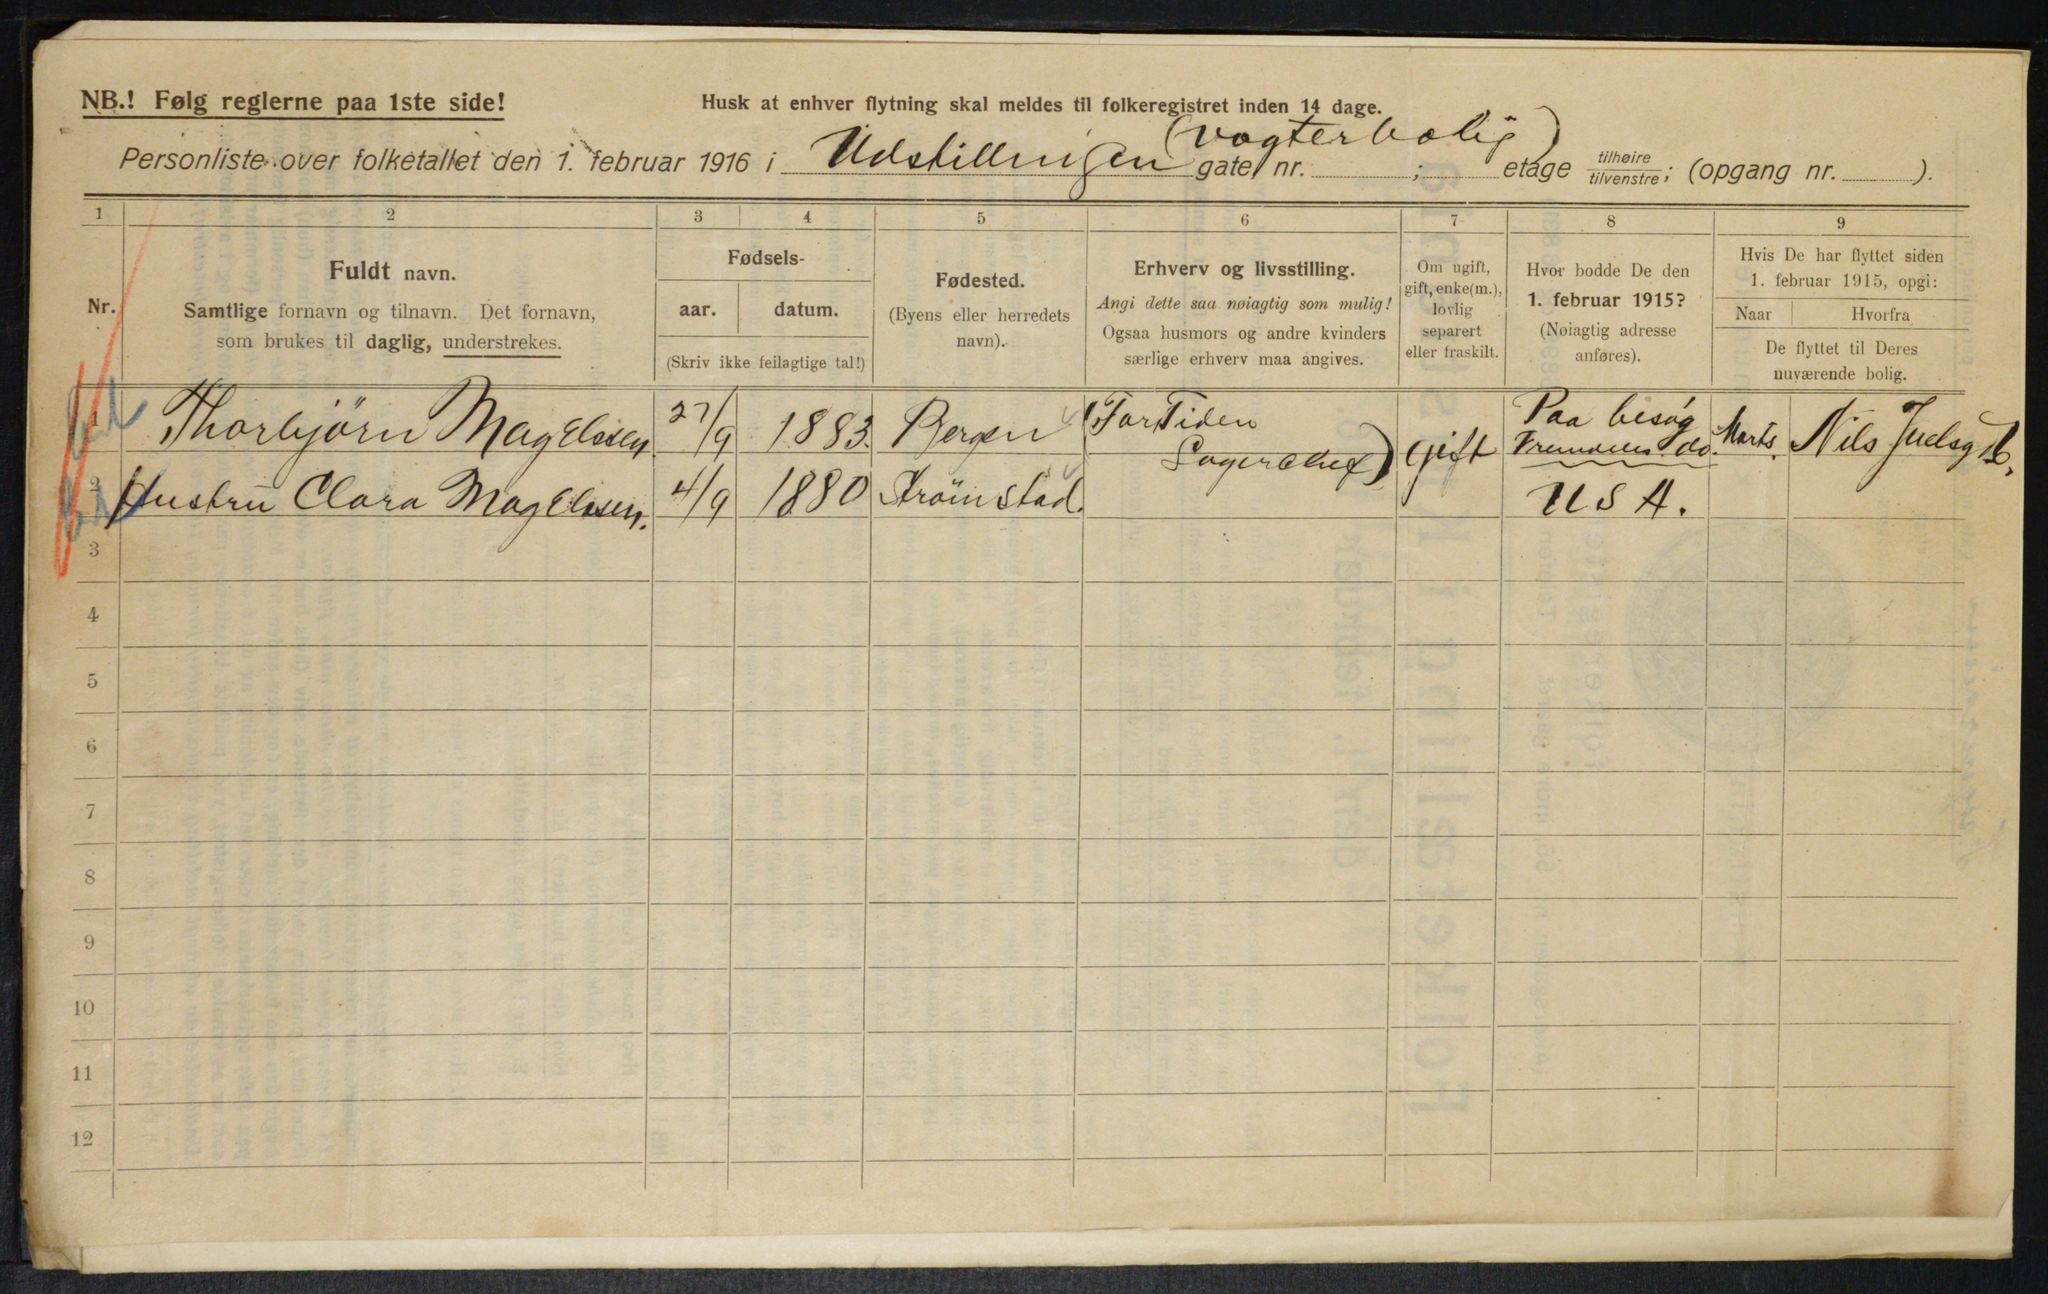 NB.! Følg reglerne paa 1ste side!
Husk at enhver flytning skal meldes til folkeregistret inden 14 dage.
(Vogterbolig)
Personliste over folketallet den 1. februar 1916 i Udstillingen gate, nr. ; etage tilhøire/tilvenstre; (opgang nr. ).
1 2 3 4 5 6 7 8 9
Nr.
Fuldt navn.
Samtlige fornavn og tilnavn. Det fornavn,
som brukes til daglig, understrekes.
Fødsels-
aar. datum.
(Skriv ikke feilagtige tal!)
Fødested.
(Byens eller herredets
navn).
Erhverv og livsstilling.
Angi dette saa nøiagtig som mulig!
Ogsaa husmors og andre kvinders
særlige erhverv maa angives.
Om ugift,
gift, enke(m.),
lovlig
separert
eller fraskilt.
Hvor bodde De den
1. februar 1915?
(Nøiagtig adresse
anføres).
Hvis De har flyttet siden
1. februar 1915, opgi:
Naar Hvorfra
De flyttet til Deres
nuværende bolig.
1 Thorbjørn Magelssen 27/9 1883. Bergen (For Tiden
Lagerchef) Gift Paa besøg
do. Marts. Nils Juelsg
2 Hustru Clara Magelssen. 4/9 1880 Strømstad. USA.
3
4
5
6
7
8
9
10
11
12